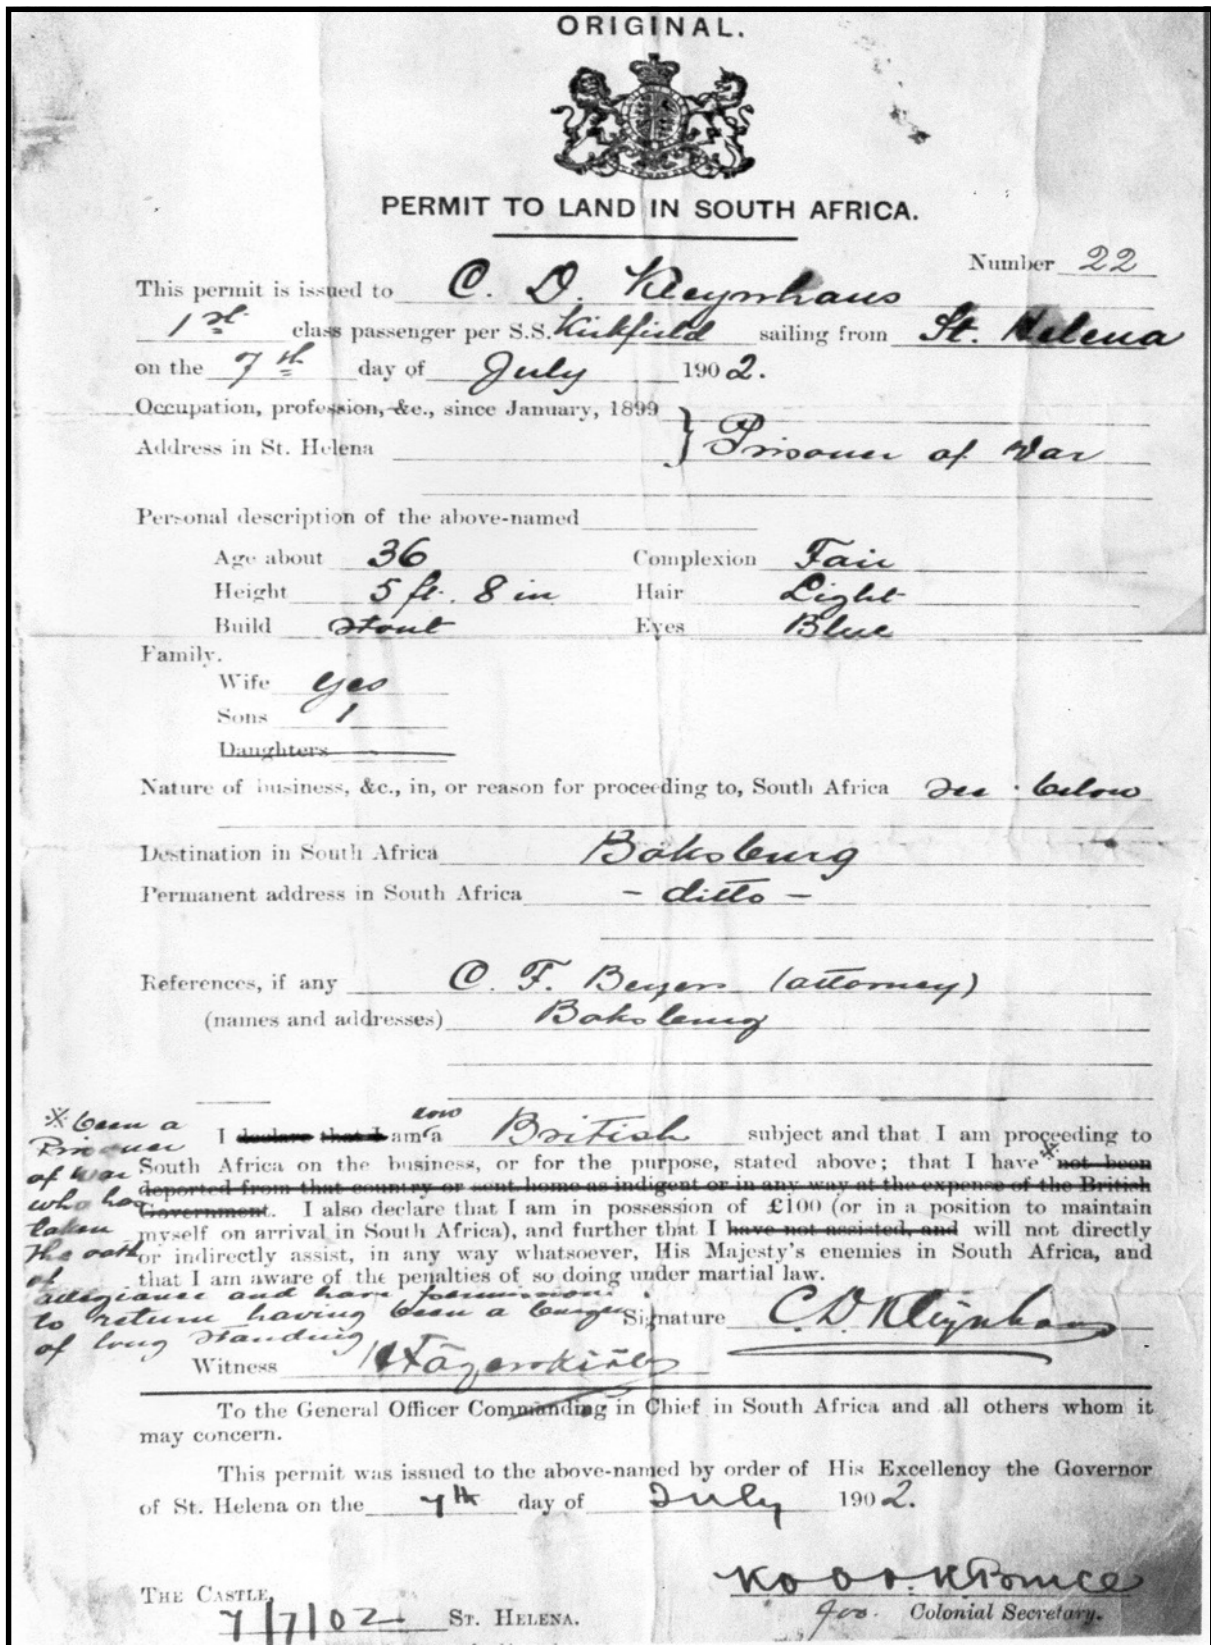 ORIGINAL.
PERMIT TO LAND IN SOUTH AFRICA.
Number 22
This permit is issued to C. D. Kleynhans
1st class passenger per S.S. Kirkfield sailing from St. Helena
on the 7th day of July 1902.
Occupation, profession, &c., since January, 1899
Address in St. Helena } Prisoner of War
Personal description of the above-named
Age about 36 Complexion Fair
Height 5 ft. 8 in Hair Light
Build Stout Eyes Blue
Family.
Wife Yes
Sons 1
Daughters
Nature of business, &c., in, or reason for proceeding to, South Africa See below
Destination in South Africa Boksburg
Permanent address in South Africa - ditto -
References, if any C. F. Beyers (attorney)
(names and addresses) Boksburg
I declare that I am now a British subject and that I am proceeding to
South Africa on the business, or for the purpose, stated above; that I have * not been
deported from that country or sent home as indigent or in any way at the expense of the British
Government. I also declare that I am in possession of £100 (or in a position to maintain
myself on arrival in South Africa), and further that I have not assisted, and will not directly
or indirectly assist, in any way whatsoever, His Majesty's enemies in South Africa, and
that I am aware of the penalties of so doing under martial law.
* been a
Prisoner
of war
who has
taken
the oath
of
allegiance and have permission
to return having been a burger
of long standing
Signature C. D. Kleijnhans
Witness
To the General Officer Commanding in Chief in South Africa and all others whom it
may concern.
This permit was issued to the above-named by order of His Excellency the Governor
of St. Helena on the 7th day of July 1902.
THE CASTLE,
7/7/02 ST. HELENA.
Colonial Secretary.